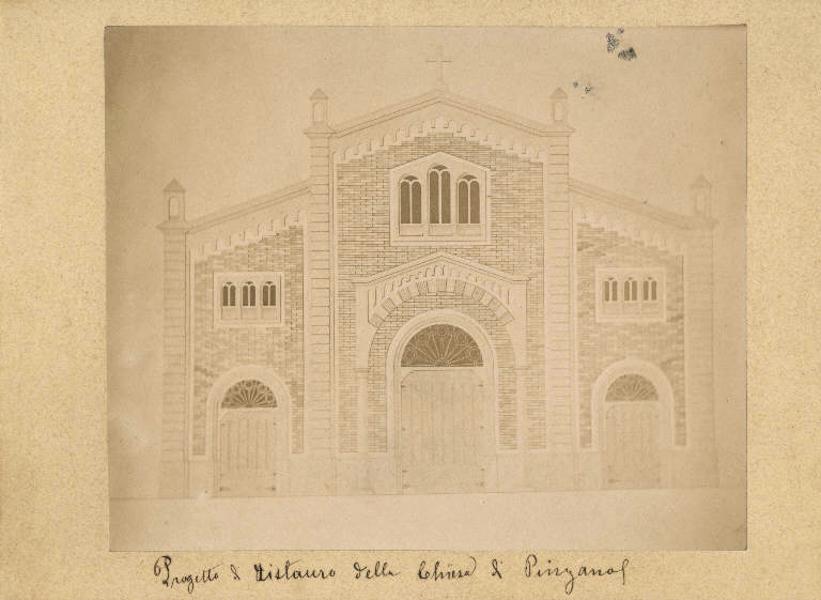 Progetto di ristauro della Chiesa di Pinzano